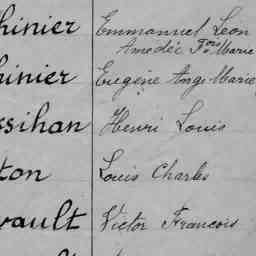 hinier Emmanuel Léon
Amédée Fçois Marie
hinier Eugène Ange Marie
ssihan Henri Louis
ton Louis Charles
vault Victor François